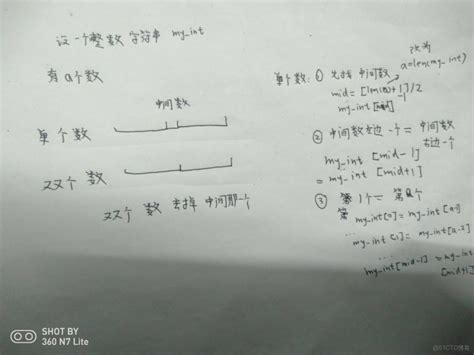 设一个整数字符串 my_int
有a个数
中间数
单个数
双双个数
双双个数 去掉中间那一个
改为
a=len(my-int)
单个数: ① 先找中间数
mid = [len(a)+1]/2
my_int
② 中间数左边一个 = 中间数右边一个
my_int [mid-1]
= my_int [mid+1]
③ 第1个 = 第a个
第 my_int[0] = my_int[a-1]
... my_int [1] = my_int[a-2]
... my_int[mid-1] = my_int
[mid+1]
SHOT BY
360 N7 Lite
@51CTO博客